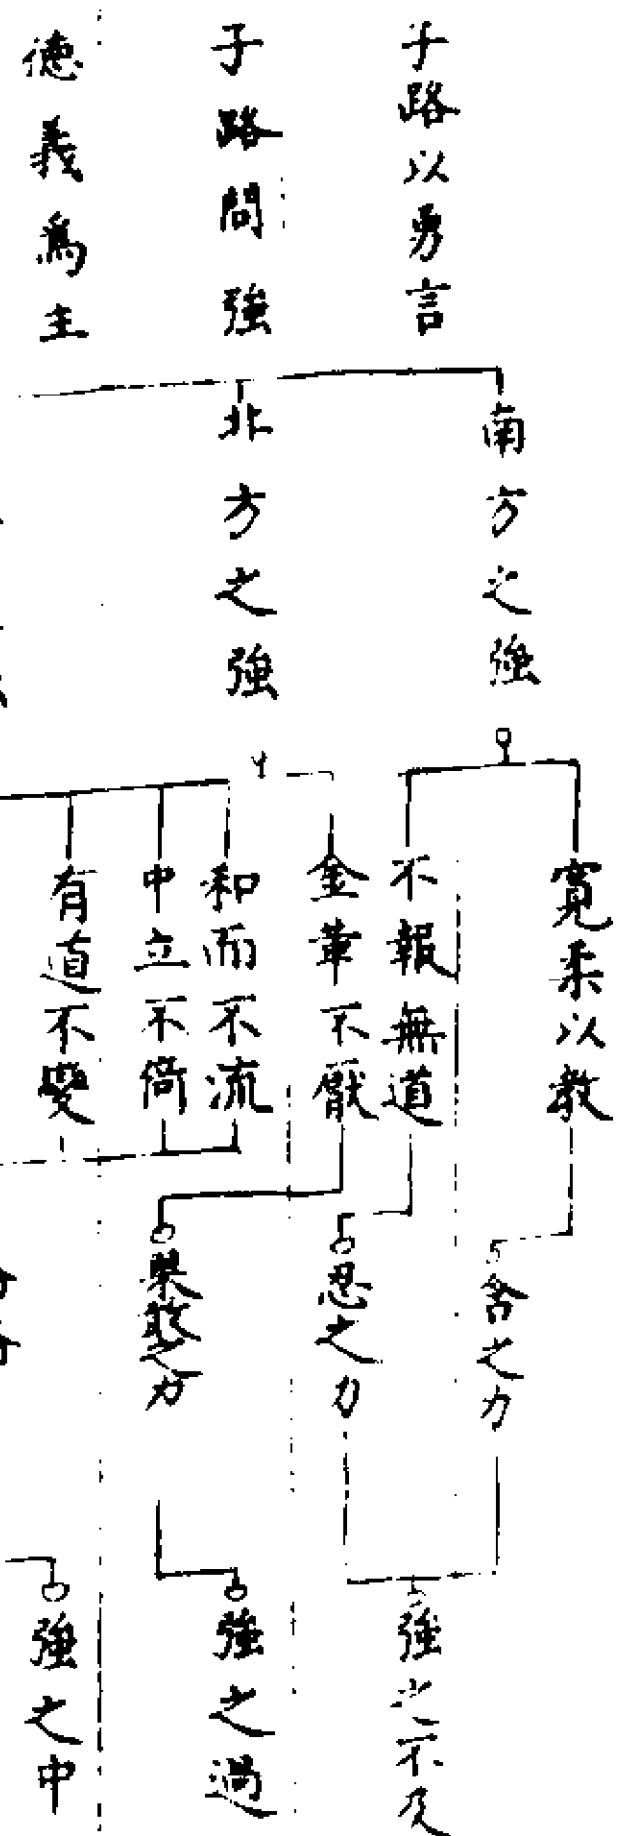 子路以勇言
子路問強
德義為主
南方之強
北方之強
寬柔以教
不報無道
金革不厭
和而不流
中立不倚
有道不變
含之力
忍之力
果敢之力
強之不及
強之過
強之中